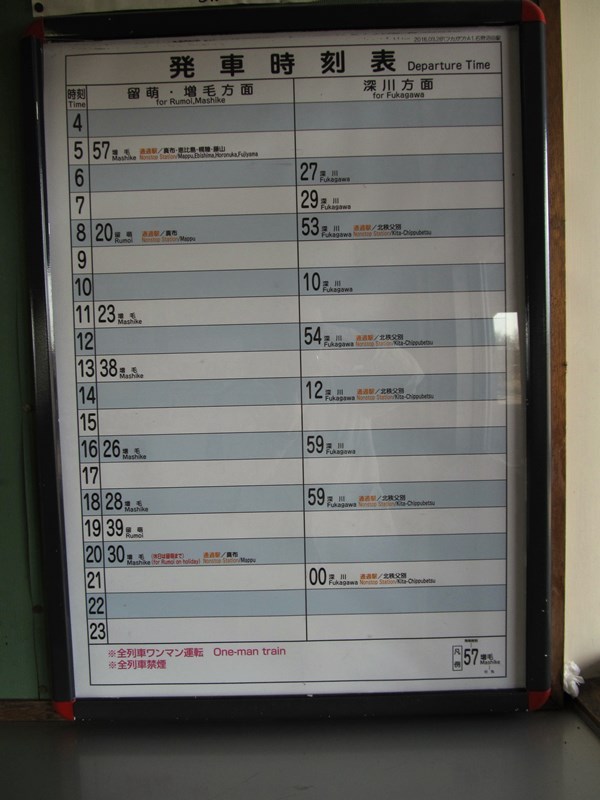 発車時刻表 Departure Time
時刻 Time
留萌・増毛方面 for Rumoi,Mashike
深川方面 for Fukagawa
4
5 57 増毛 Mashike 通過駅/真布・恵比島・幌糠・藤山 Nonstop Station/Mappu,Ebishima,Horonuka,Fujiyama
6 27 深川 Fukagawa
7 29 深川 Fukagawa
8 20 留萌 Rumoi 通過駅/真布 Nonstop Station/Mappu 53 深川 Fukagawa 通過駅/北秩父別 Nonstop Station/Kita-Chippubetsu
9
10 10 深川 Fukagawa
11 23 増毛 Mashike
12 54 深川 Fukagawa 通過駅/北秩父別 Nonstop Station/Kita-Chippubetsu
13 38 増毛 Mashike
14 12 深川 Fukagawa 通過駅/北秩父別 Nonstop Station/Kita-Chippubetsu
15
16 26 増毛 Mashike 59 深川 Fukagawa
17
18 28 増毛 Mashike 59 深川 Fukagawa 通過駅/北秩父別 Nonstop Station/Kita-Chippubetsu
19 39 留萌 Rumoi
20 30 増毛 Mashike (休日は留萌まで) (for Rumoi on holiday) 通過駅/真布 Nonstop Station/Mappu
21 00 深川 Fukagawa 通過駅/北秩父別 Nonstop Station/Kita-Chippubetsu
22
23
※全列車ワンマン運転 One-man train
※全列車禁煙
凡例 57 増毛 Mashike